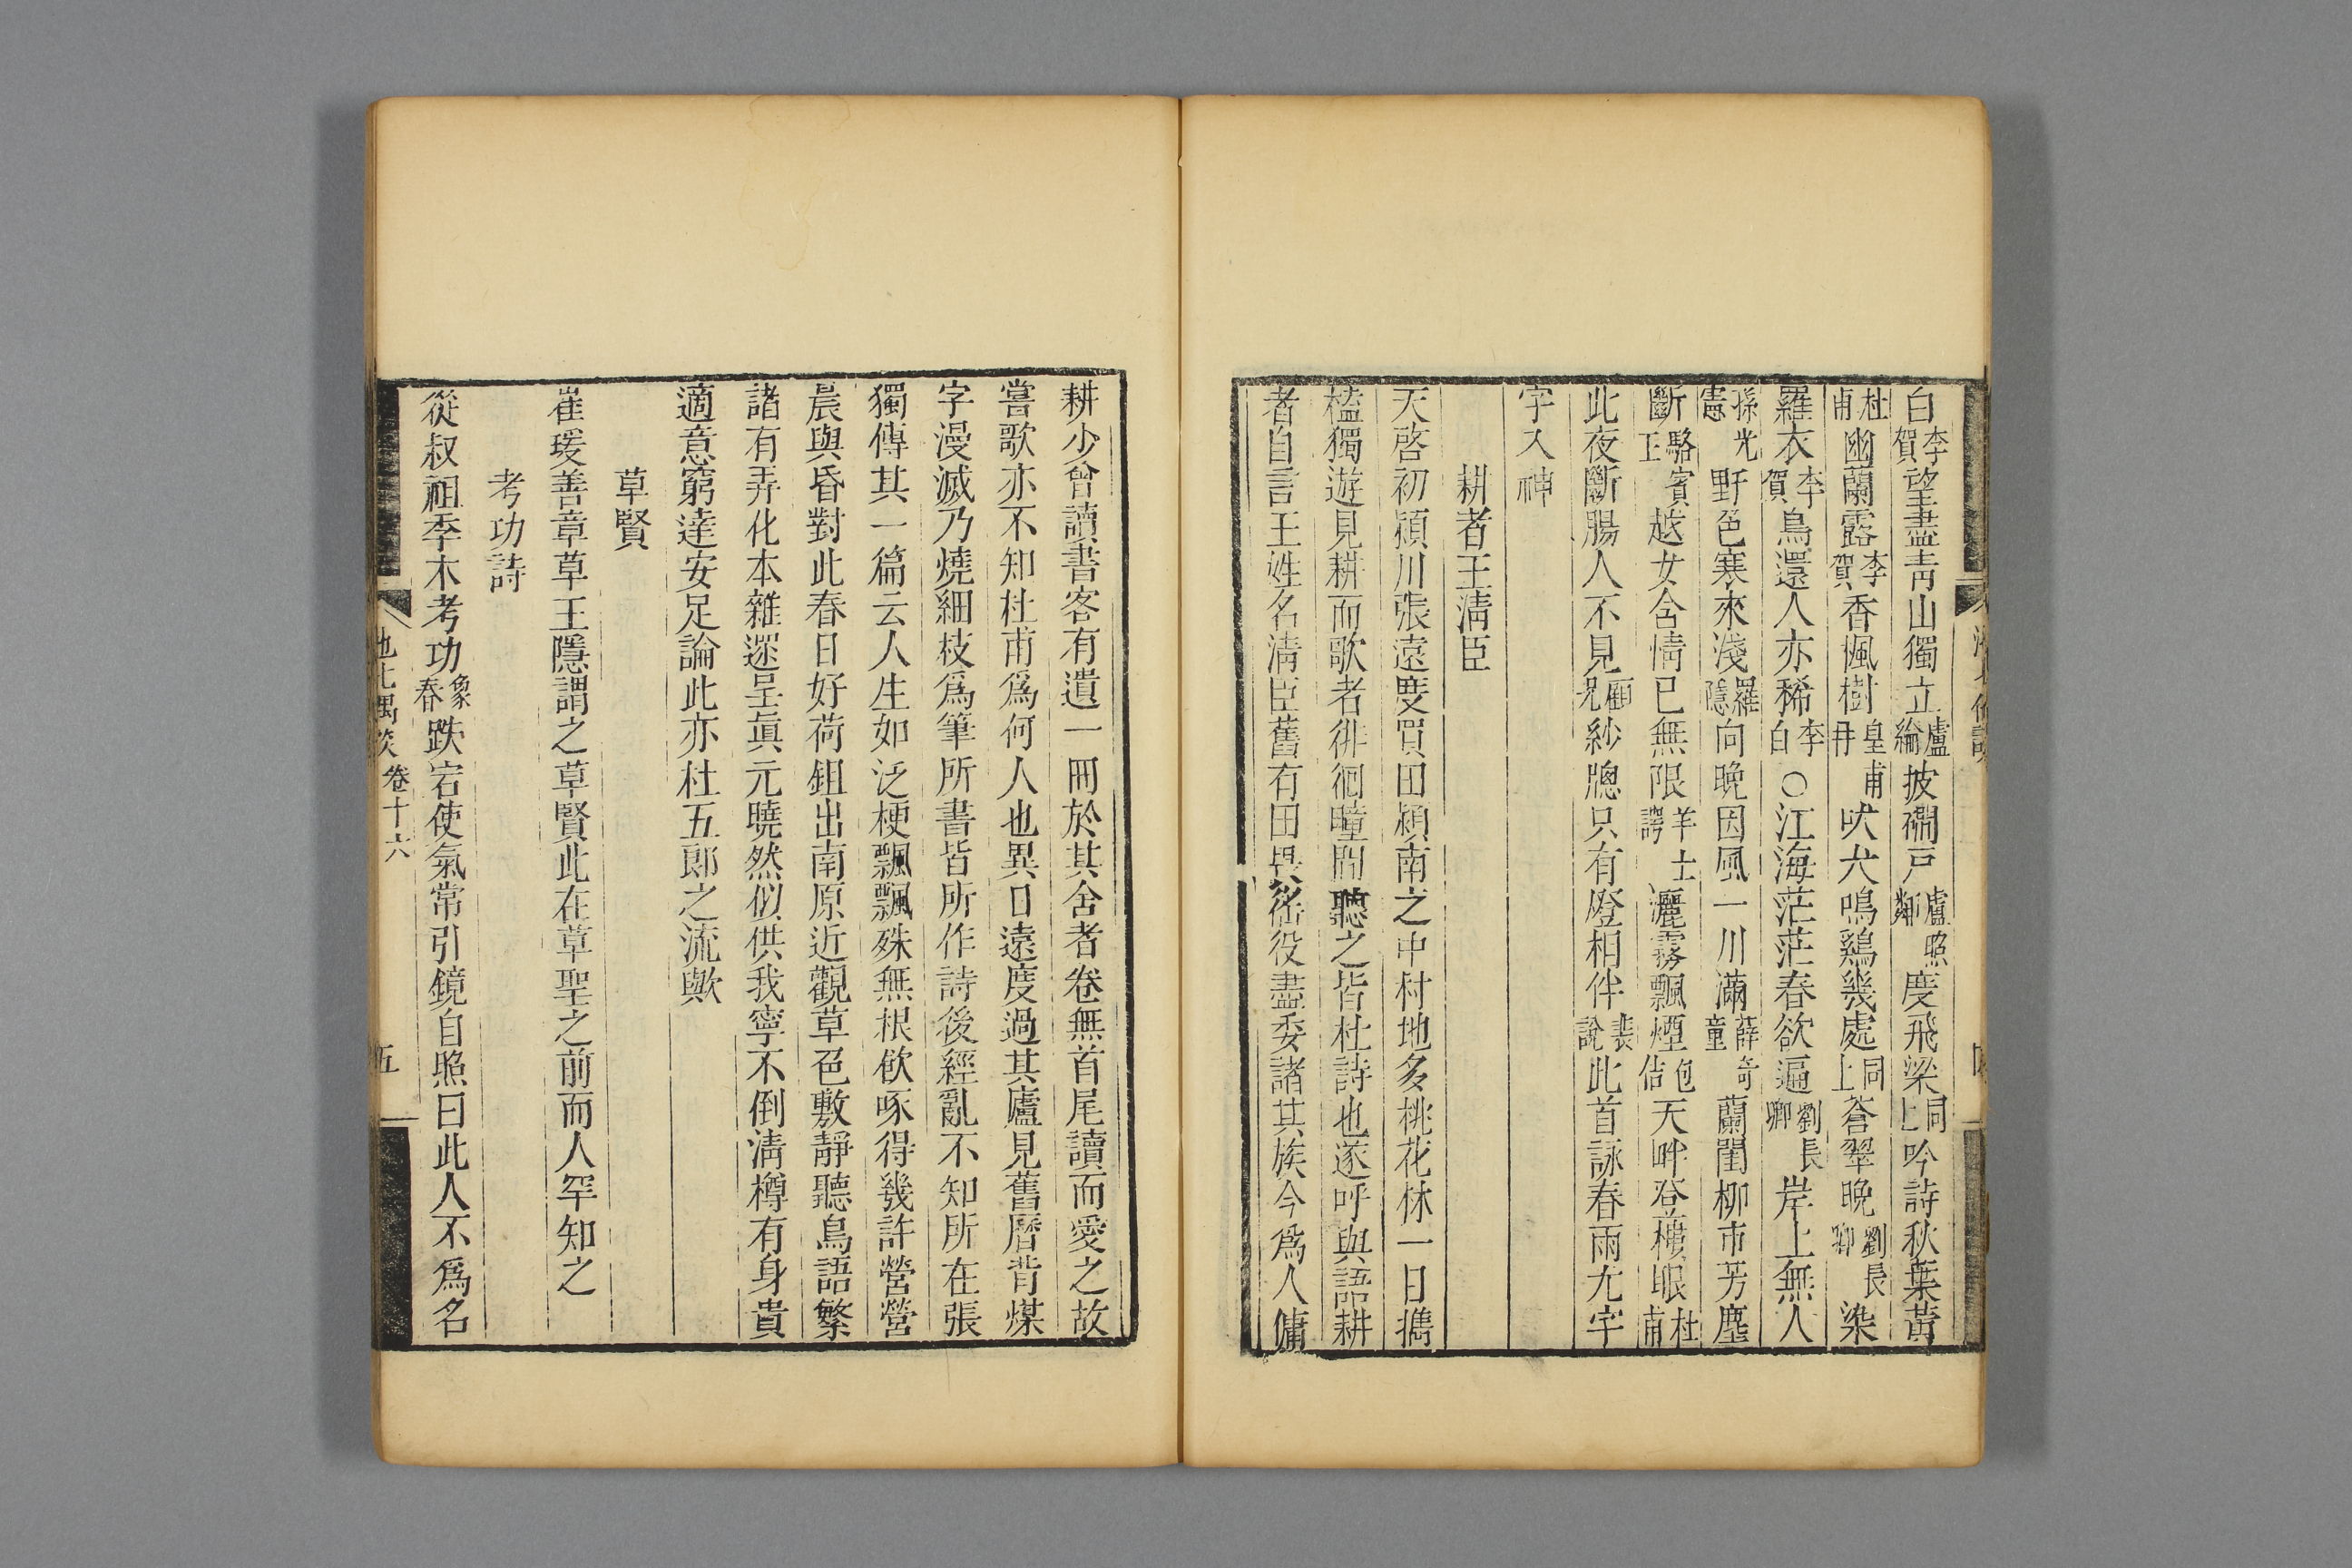 白李賀望盡青山獨立盧綸披襴戸盧照鄰度飛梁同上吟詩秋葉黃
杜甫幽蘭露李賀香楓樹皇甫冉吠犬鳴鷄幾處同上蒼翠晚劉長卿染
羅衣李賀鳥還人亦稀李白○江海茫茫春欲遍劉長卿岸上無人
孫光憲野色寒來淺羅隱向晚因風一川滿薛奇童蘭閨柳市芳塵
斷駱賓王越女含情已無限羊士諤灑霧飄煙包佶天畔登樓眼杜甫
此夜斷腸人不見顧況紗牕只有燈相伴裴說此首詠春雨尤字
字入神
耕者王淸臣
天啓初潁川張遠度買田潁南之中村地多桃花林一日攜
榼獨遊見耕而歌者徘徊疃間聽之皆杜詩也遂呼與語耕
者自言王姓名淸臣舊有田畏徭役盡委諸其族今爲人傭
耕少曾讀書客有遺一冊於其舍者卷無首尾讀而愛之故
嘗歌亦不知杜甫爲何人也異日遠度過其廬見舊曆背煤
字漫滅乃燒細枝爲筆所書皆所作詩後經亂不知所在張
獨傳其一篇云人生如泛梗飄飄殊無根飲啄得幾許營營
晨與昏對此春日好荷鉏出南原近觀草色敷靜聽鳥語繁
諸有弄化本雜遝呈眞元曉然似供我寧不倒淸樽有身貴
適意窮達安足論此亦杜五郎之流歟
草賢
崔瑗善章草王隱謂之草賢此在草聖之前而人罕知之
考功詩
從叔祖季木考功象春跌宕使氣常引鏡自照曰此人不爲名
池北偶談 卷十六
五